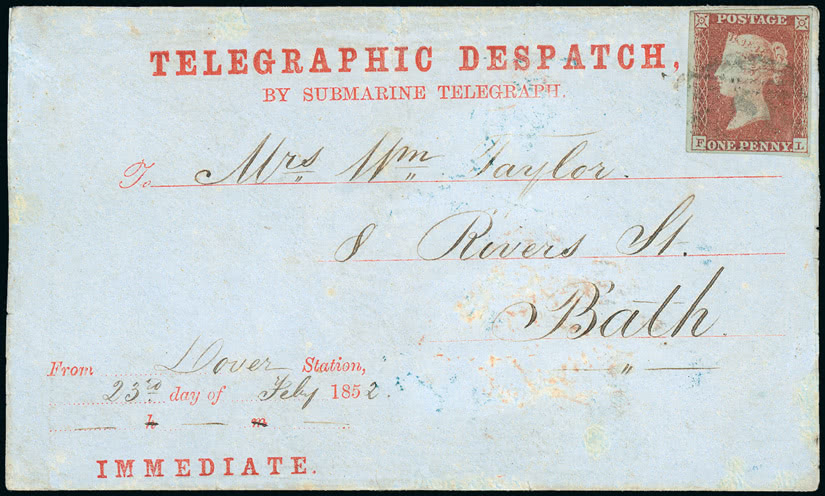 TELEGRAPHIC DESPATCH,
BY SUBMARINE TELEGRAPH.
POSTAGE
F ONE PENNY L
To Mrs Wm Taylor.
8 Rivers St.
Bath.
From Dover Station,
23rd day of Feby 1852.
h m
IMMEDIATE.